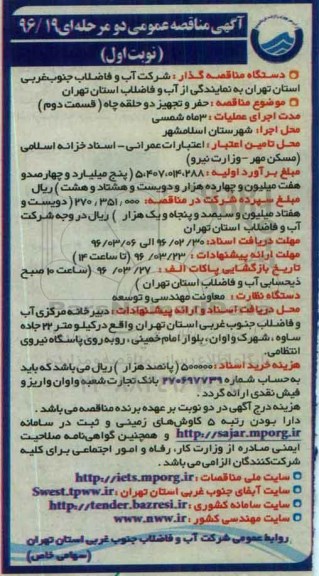 آگهی مناقصه عمومی دو مرحله‌ای ۹۶/۱۹
(نوبت اول)
دستگاه مناقصه گذار : شرکت آب و فاضلاب جنوب‌غربی
استان تهران به نمایندگی از آب و فاضلاب استان تهران
موضوع مناقصه : حفر و تجهیز دو حلقه چاه ( قسمت دوم )
مدت اجرای عملیات : ۳ماه شمسی
محل اجرا: شهرستان اسلامشهر
محل تامین اعتبار : اعتبارات عمرانی - اسناد خزانه اسلامی
(مسکن مهر - وزارت نیرو)
مبلغ بـرآورد اولیـه : ۵،۴۰۷،۰۱۴،۲۸۸ ( پنج میلیـارد و چهارصدو
هفت میلیون و چهارده هزار و دویست و هشتاد و هشت ) ریال
مبلغ سپرده شرکت در مناقصه: ۲۷۰،۳۵۱،۰۰۰ ( دویست و
هفتاد میلیون و سیصد و پنجاه و یک هزار ) ریال در وجه شرکت
آب و فاضلاب استان تهران
مهلت دریافت اسناد: ۹۶/۰۲/۳۰ الی ۹۶/۰۳/۰۶
مهلت ارائه پیشنهادات : ۹۶/۰۳/۲۳ (تا ساعت ۱۴)
تاریخ بازگشایی پاکات الف : ۹۶/۰۳/۲۷ (ساعت ۱۰ صبح
ذیحسابی آب و فاضلاب استان تهران )
دستگاه نظارت : معاونت مهندسی و توسعه
محل دریافت اسناد و ارائه پیشنهادات : دبیرخانه مرکزی آب
و فاضلاب جنوب غربی استان تهران واقع در کیلومتر ۲۳ جاده
ساوه ، شهرک واوان ، بلوار امام خمینی ، روبه روی پاسگاه نیروی
انتظامی.
هزینه خرید اسناد : ۵۰۰۰۰۰ ( پانصد هزار ) ریال می باشد که باید
به حساب شماره ۲۷۰۶۹۷۷۳۹ بانک تجارت شعبه واوان واریز و
فیش نقدی ارائه گردد .
هزینه درج آگهی در دو نوبت بر عهده برنده مناقصه می باشد .
دارا بودن رتبه ۵ کاوش‌های زمینی و ثبت در سامانه
http://sajar.mporg.ir و همچنین گواهی‌نامه صلاحیت
ایمنی صادره از وزارت کار، رفاه و امور اجتماعی برای کلیه
شرکت‌کنندگان الزامی می باشد .
سایت ملی مناقصات : http://iets.mporg.ir
سایت آبفای جنوب غربی استان تهران : Swest.tpww.ir
سایت سامانه کشوری : http://tender.bazresi.ir
سایت مهندسی کشور : www.nww.ir
روابط عمومی شرکت آب و فاضلاب جنوب غربی استان تهران
(سهامی خاص)